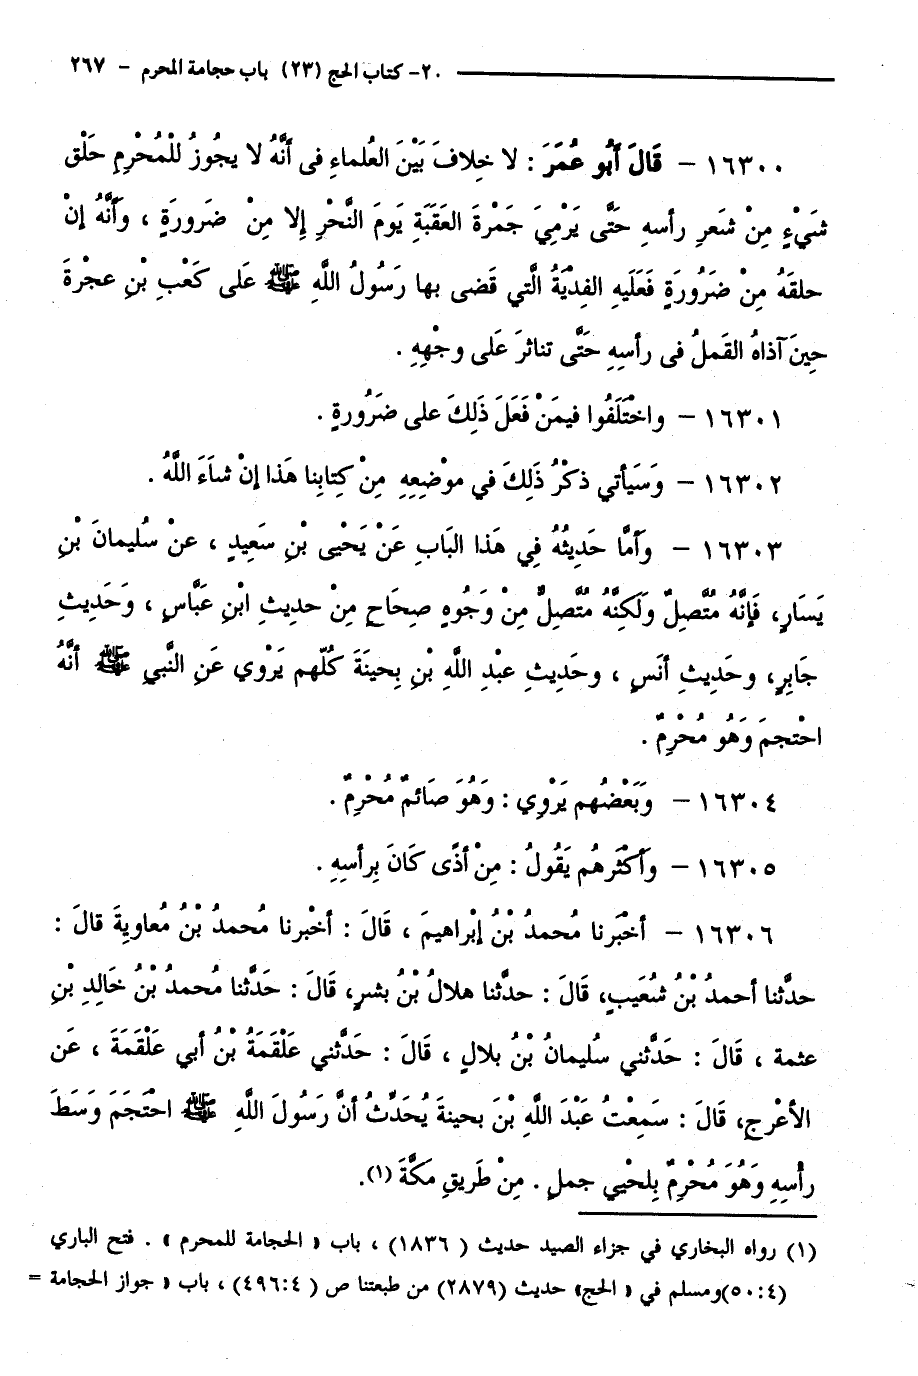 ٢٠- كتاب الحج (٢٣) باب حجامة المحرم – ٢٦٧
١٦٣٠٠ – قَالَ أَبُو عُمَرَ : لا خلافَ بَيْنَ العُلماءِ فى أَنَّهُ لا يجوزُ للْمُحْرِمِ حَلْق
شَيْءٍ مِنْ شَعرِ رأسه حَتَّى يَرْمِيَ جَمْرةَ العَقَبَةِ يَومَ النَّحْرِ إِلا مِنْ ضَرورَةٍ ، وَأَنَّهُ إنْ
حلقَهُ مِنْ ضَرُورَةٍ فَعَلَيهِ الفِدْيَةُ الَّتي قَضى بها رَسُولُ اللَّهِ ﷺ عَلى كَعْبِ بْنِ عجْرةَ
حِينَ آذاهُ القَملُ فى رأسِهِ حَتَّى تناثرَ عَلى وجْهِهِ .
١٦٣٠١ – واخْتَلَفُوا فيمَنْ فَعَلَ ذَلِكَ على ضَرُورةٍ .
١٦٣٠٢ – وَسَيَأتي ذكْرُ ذَلِكَ في موْضِعِهِ مِنْ كِتابِنا هَذا إنْ شاَءَ اللَّهُ .
١٦٣٠٣ – وَأَمَّا حَدِيثُهُ فِي هَذا البَابِ عَنْ يَحْيى بْنِ سَعِيدٍ ، عنْ سُليمانَ بْنِ
يَسَارٍ، فَإنَّهُ مُتَّصِلٌ وَلَكِنَّهُ مُتَّصِلٌ مِنْ وَجُوهٍ صِحَاحٍ مِنْ حديثِ ابْنِ عَبَّاسٍ ، وَحَدِيثِ
جَابِرٍ، وحَدِيثِ أنَسٍ ، وحَدِيثِ عبْدِ اللَّهِ بْنِ بِحينَةَ كُلّهم يَرْوي عَنِ النَّبيِ ﷺ أنَّهُ
احْتجمَ وَهُو مُحْرِمٌ .
١٦٣٠٤ – وَبَعْضُهم يَرْوِي : وَهُوَ صَائمٌ مُحْرِمٌ .
١٦٣٠٥ – وَأكْثَرهُم يَقُولُ : مِنْ أذًى كَانَ بِرأسِهِ .
١٦٣٠٦ – أخبَرنا مُحمدُ بْنُ إبْراهيمَ ، قَالَ : أخْبرنا مُحمدُ بْنُ مُعاويةَ قالَ :
حدَّثنا أحمدُ بْنُ شُعَيبٍ، قَالَ : حدَّثنا هلالُ بْنُ بشرٍ، قَالَ : حَدَّثنا مُحمدُ بْنُ خَالِدِ بْنِ
عثمة ، قَالَ : حَدَّثني سُليمانُ بْنُ بلالٍ ، قَالَ : حَدَّثني عَلْقمَةُ بْنُ أبي عَلْقَمَةَ ، عَن
الأعْرجِ، قَالَ : سَمِعْتُ عَبْدَ اللَّهِ بْنَ بحينةَ يُحَدِّثُ أنَّ رَسُولَ اللَّهِ ﷺ احْتَجَمَ وَسَطَ
رأسِهِ وَهُوَ مُحْرِمٌ بِلحْيي جملٍ . مِنْ طَرِيقِ مَكَّةَ (١).
(١) رواه البخاري في جزاء الصيد حديث ( ١٨٣٦) ، باب « الحجامة للمحرم » . فتح الباري
(٤:٥٠)ومسلم في « الحج» حديث (٢٨٧٩) من طبعتنا ص ( ٤:٤٩٦) ، باب « جواز الحجامة =